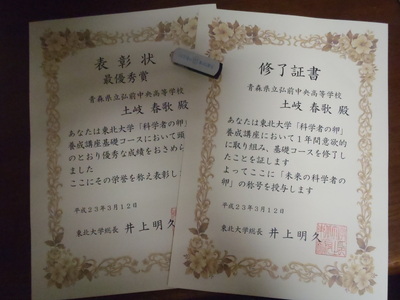 表彰状
最優秀賞
青森県立弘前中央高等学校
土岐 春歌 殿
あなたは東北大学「科学者の卵」
養成講座基礎コースにおいて頭
のとおり優秀な成績をおさめら
ました
ここにその学誉を称え表彰し
平成23年3月12日
東北大学総長 井上明久
修了証書
青森県立弘前中央高等学校
土岐 春歌 殿
あなたは東北大学「科学者の卵」
養成講座において1年間意欲的
に取り組み、基礎コースを修了し
たことを証します
よってここに「未来の科学者の
卵」の称号を授与します
平成23年3月12日
東北大学総長 井上明久